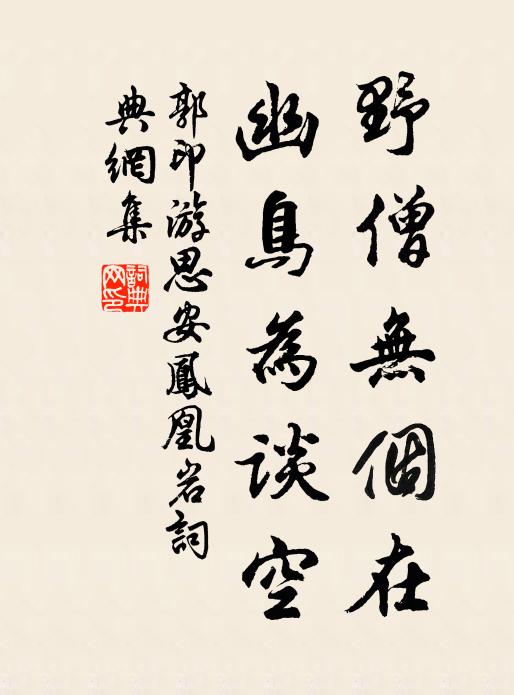 野僧無個在
幽鳥為談空
郭印游思安鳳凰岩詞
典網集
詞典
網印